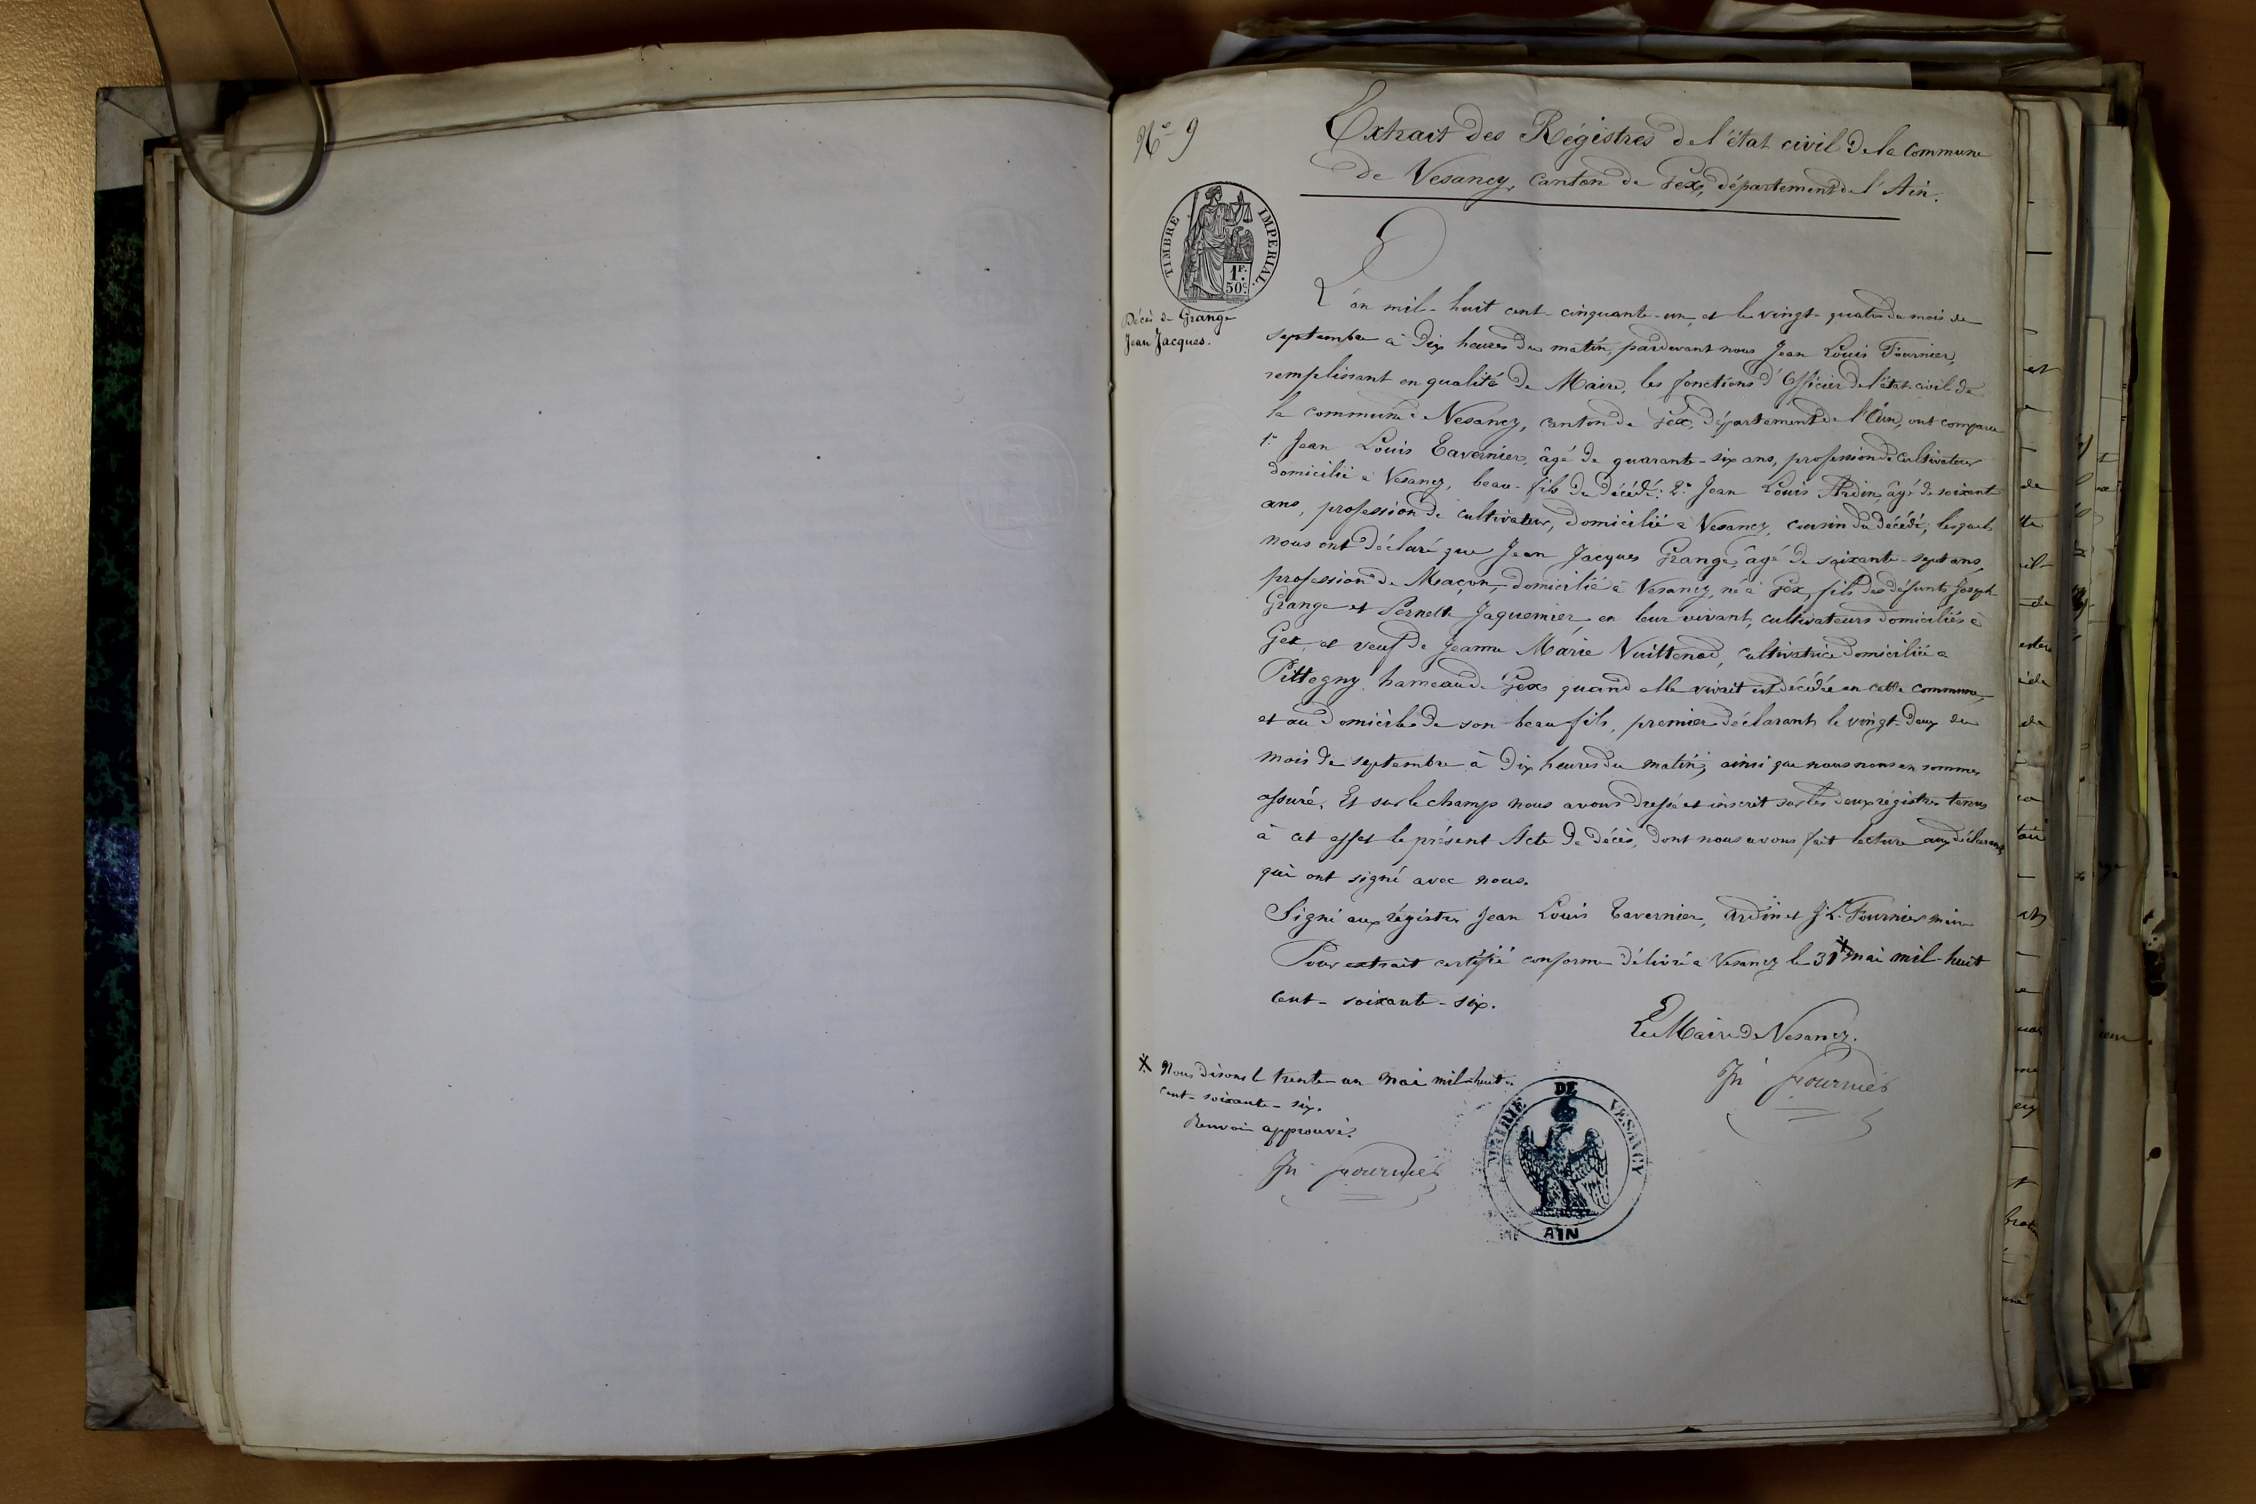 N° 9
Extrait des Régistres de l'état civil de la Commune
de Vesancy, canton de Gex, département de l'Ain.
TIMBRE IMPERIAL.
1F.
50C.
Décès de Grange
Jean Jacques.
L'an mil-huit cent-cinquante-un et le vingt-quatre du mois de
septembre à dix heures du matin, pardevant nous Jean Louis Fournier,
remplissant en qualité de Maire, les fonctions d'Officier de l'état civil de
la commune Vesancy, canton de Gex, département de l'Ain, ont comparu
1° Jean Louis Tavernier, âgé de quarante-six ans, profession de cultivateur
domicilié à Vesancy, beau-fils du décédé: 2° Jean Louis Ardin, âgé de soixante
ans, profession de cultivateur, domicilié à Vesancy, cousin du décédé, lesquels
nous ont déclaré que Jean Jacques Grange, âgé de soixante-sept ans,
profession de Maçon, domicilié à Vesancy, né à Gex, fils des défunts Joseph
Grange et Pernette Jaquemier, en leur vivant, cultivateurs domiciliés à
Gex, et veuf de Jeanne Marie Vuittenod, cultivatrice domiciliée à
Pittegny hameau de Gex quand elle vivait est décédée en cette commune,
et au domicile de son beau fils, premier déclarant le vingt-deux du
mois de septembre à dix heures du matin, ainsi que nous nous en sommes
assuré. Et sur le champ nous avons dressé et inscrit sur les deux régistres tenus
à cet effet le présent Acte de décès, dont nous avons fait lecture aux déclarants
qui ont signé avec nous.
Signé aux régistres Jean Louis Tavernier, Ardin et J. L. Fournier maire
Pour extrait certifié conforme délivré à Vesancy le 31 * mai mil-huit
cent-soixante-six.
Le Maire de Vesancy.
Fournier
* Nous disons le trente-un mai mil-huit-
cent-soixante-six.
Renvoi approuvé.
Fournier
MAIRIE DE VESANCY
AIN